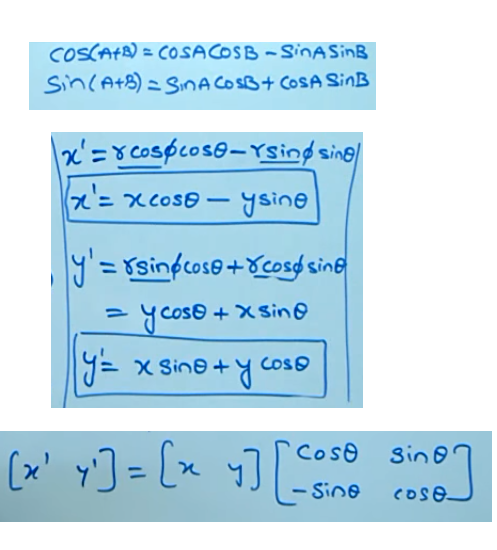 COS(A+B) = COSA COSB - SinA SinB
Sin(A+B) = SinA CosB + COSA SinB
x' = r cosϕ cosθ - r sinϕ sinθ
x' = x cosθ - y sinθ
y' = r sinϕ cosθ + r cosϕ sinθ
= y cosθ + x sinθ
y' = x sinθ + y cosθ
[x' y'] = [x y] [cosθ sinθ
-sinθ cosθ]